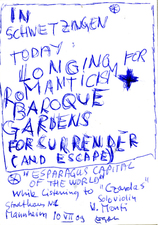 IN
SCHWETZINGEN
TODAY:
LONGING FOR
ROMANTICISM +
BAROQUE
GARDENS
FOR CURRENDER
(AND ESCAPE)
* "ESPARAGUS CAPITAL
OF THE WORLD"
While listening to "Czardas"
Stadthaus N1 Soloviolin
Mannheim 10 VII 09 V. Monti